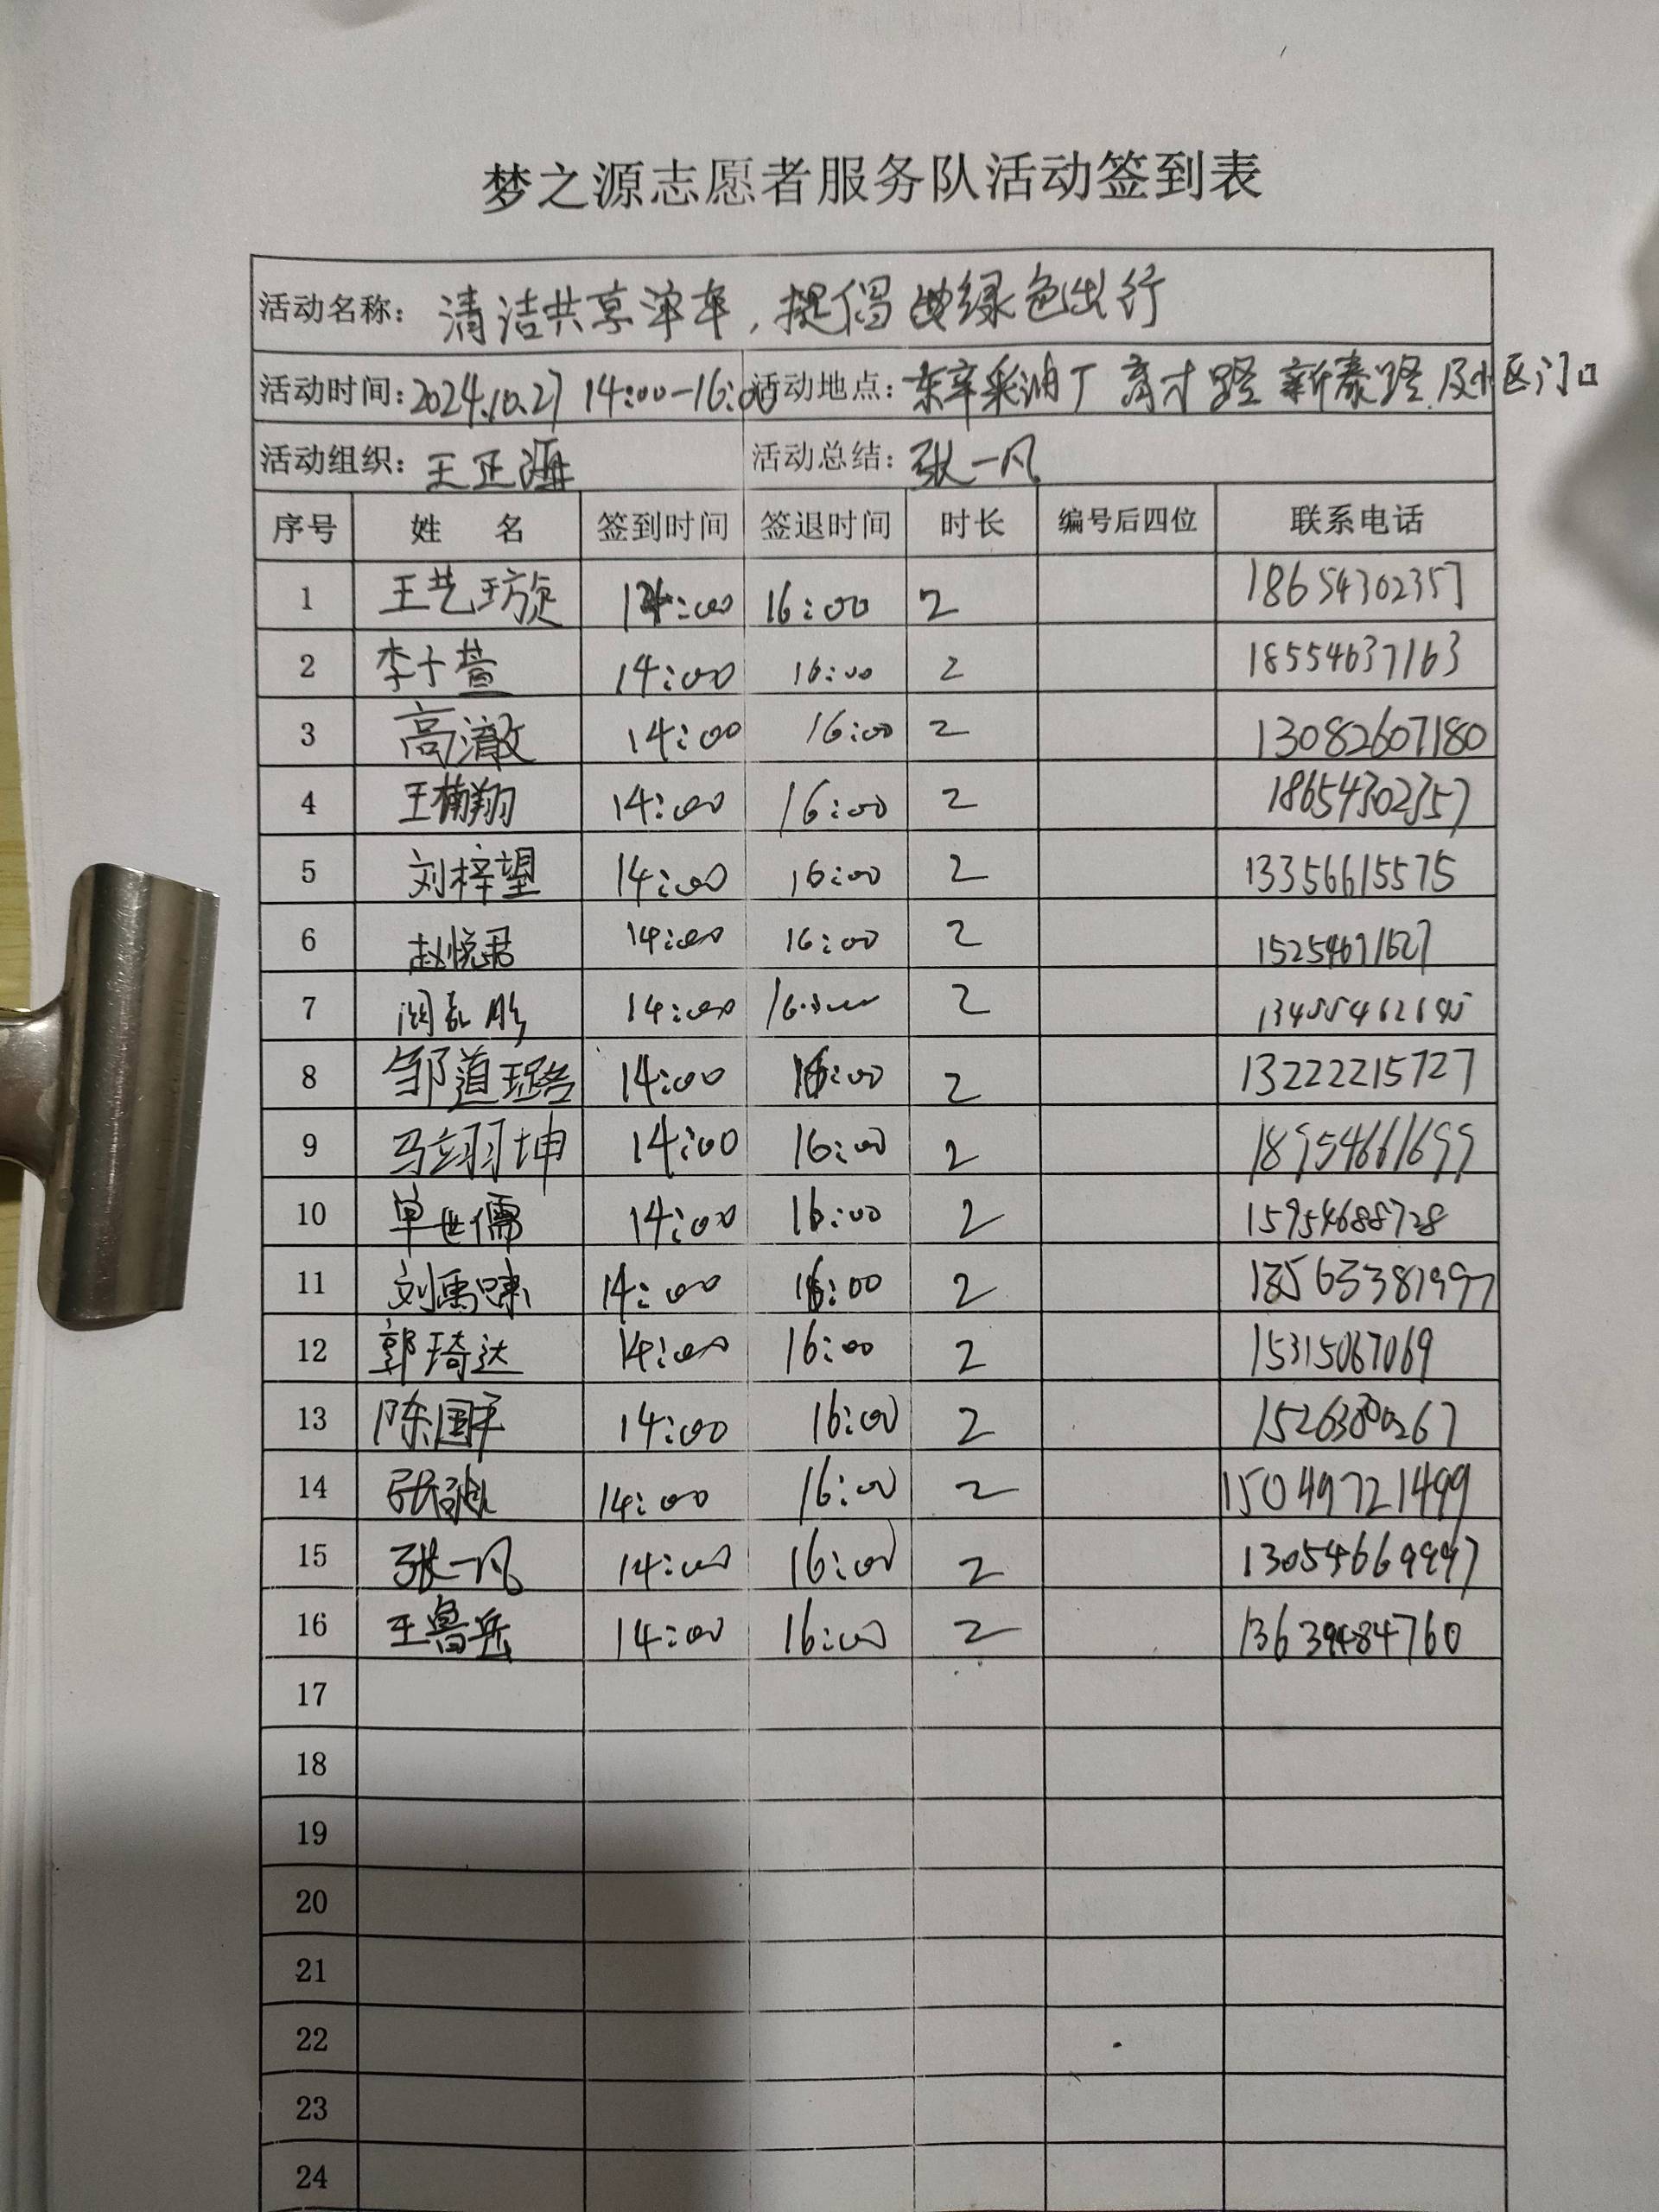 梦之源志愿者服务队活动签到表
活动名称: 清洁共享单车,提倡绿色出行
活动时间:2024.10.27 14:00-16:00 活动地点:东辛采油厂育才路 新泰路及小区门口
活动组织:王正源 活动总结:张一凡
序号 姓 名 签到时间 签退时间 时长 编号后四位 联系电话
1 王艺璇 14:00 16:00 2 18654302357
2 李子萱 14:00 16:00 2 18554637163
3 高澈 14:00 16:00 2 13082607180
4 王楠翔 14:00 16:00 2 18654302357
5 刘梓望 14:00 16:00 2 13356615575
6 赵悦君 14:00 16:00 2
7 14:00 16:00 2
8 邹道璐 14:00 16:00 2 13222215727
9 马翊坤 14:00 16:00 2 18954661699
10 单世儒 14:00 16:00 2 15954688728
11 刘禹 14:00 16:00 2
12 郭琦达 14:00 16:00 2 15315067069
13 陈国平 14:00 16:00 2
14 张 14:00 16:00 2 15049721499
15 张一凡 14:00 16:00 2 13054669997
16 王鲁岳 14:00 16:00 2 13639484760
17
18
19
20
21
22
23
24